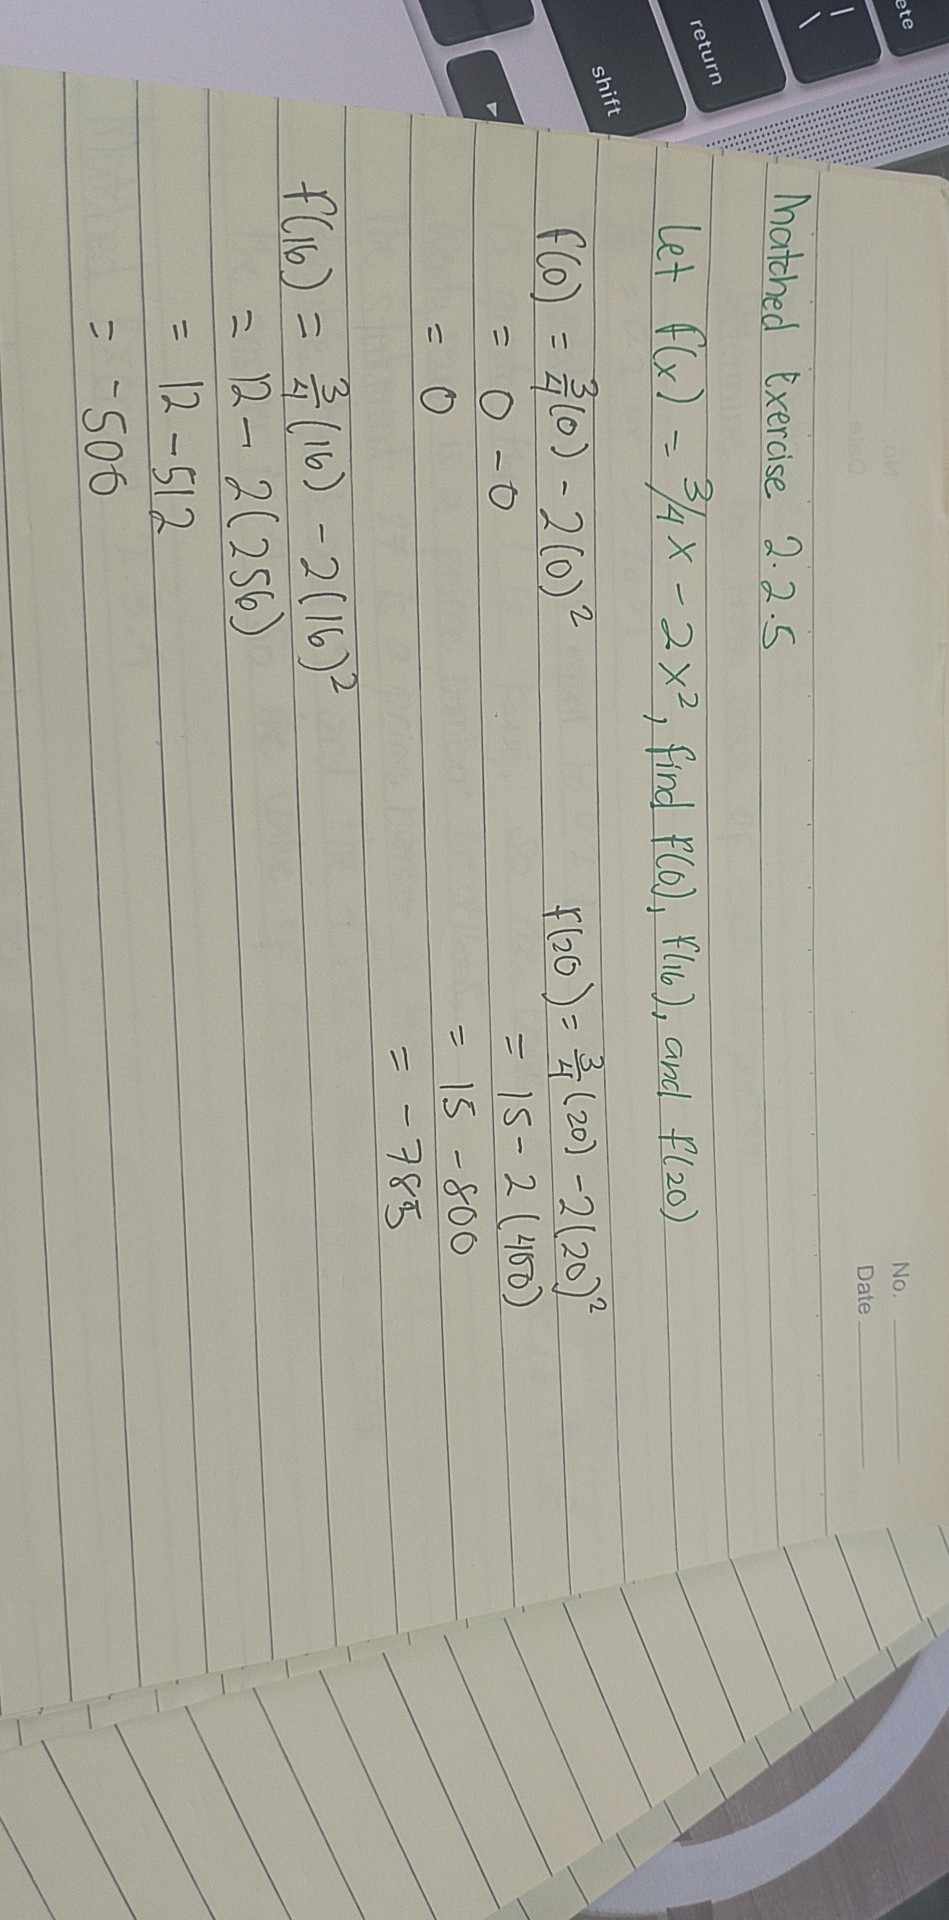 ete
|
\
return
shift
No.
Date
Matched Exercise 2.2.5
Let f(x) = 3/4 x - 2x², find f(0), f(16), and f(20)
f(0) = 3/4 (0) - 2(0)²
= 0 - 0
= 0
f(16) = 3/4 (16) - 2(16)²
= 12 - 2(256)
= 12 - 512
= -500
f(20) = 3/4 (20) - 2(20)²
= 15 - 2(400)
= 15 - 800
= - 785